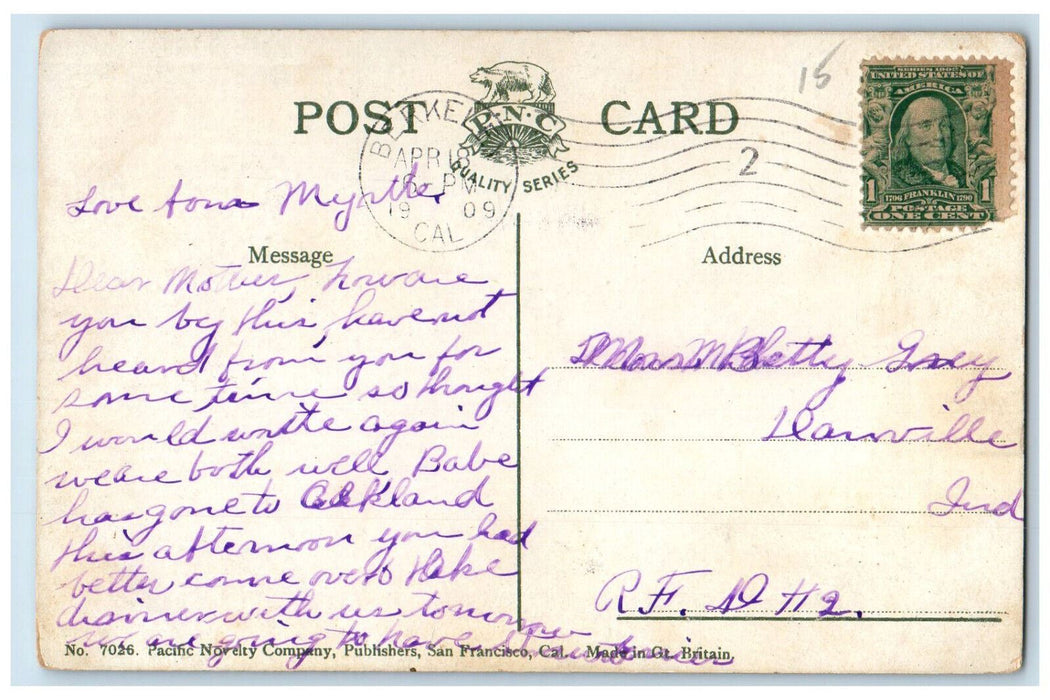 POST CARD
P·N·C
QUALITY SERIES
BERKELEY
APR 18
6 PM
19 09
CAL
2
15
SERIES 1902
UNITED STATES OF
AMERICA
1 1
1706 FRANKLIN 1790
POSTAGE
ONE CENT
Love from Myrtle
Message
Dear Mother, how are
you by this, have not
heard from you for
some time so thought
I would write again
we are both well Babe
has gone to Oakland
this afternoon you had
better come over & take
dinner with us tomorrow
we are going to have Strawberries
Address
Mrs Betty
Danville
Ind
R.F.D #2.
No. 7026. Pacific Novelty Company, Publishers, San Francisco, Cal. Made in Gt. Britain,